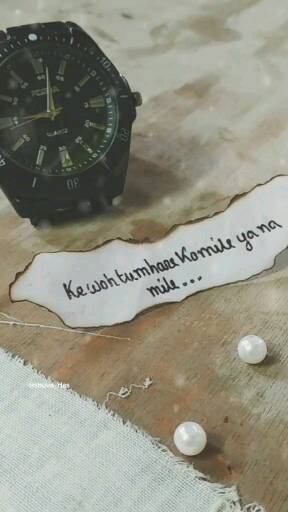 QUARTZ
Ke woh tumhare Ko mile ya na
mile...